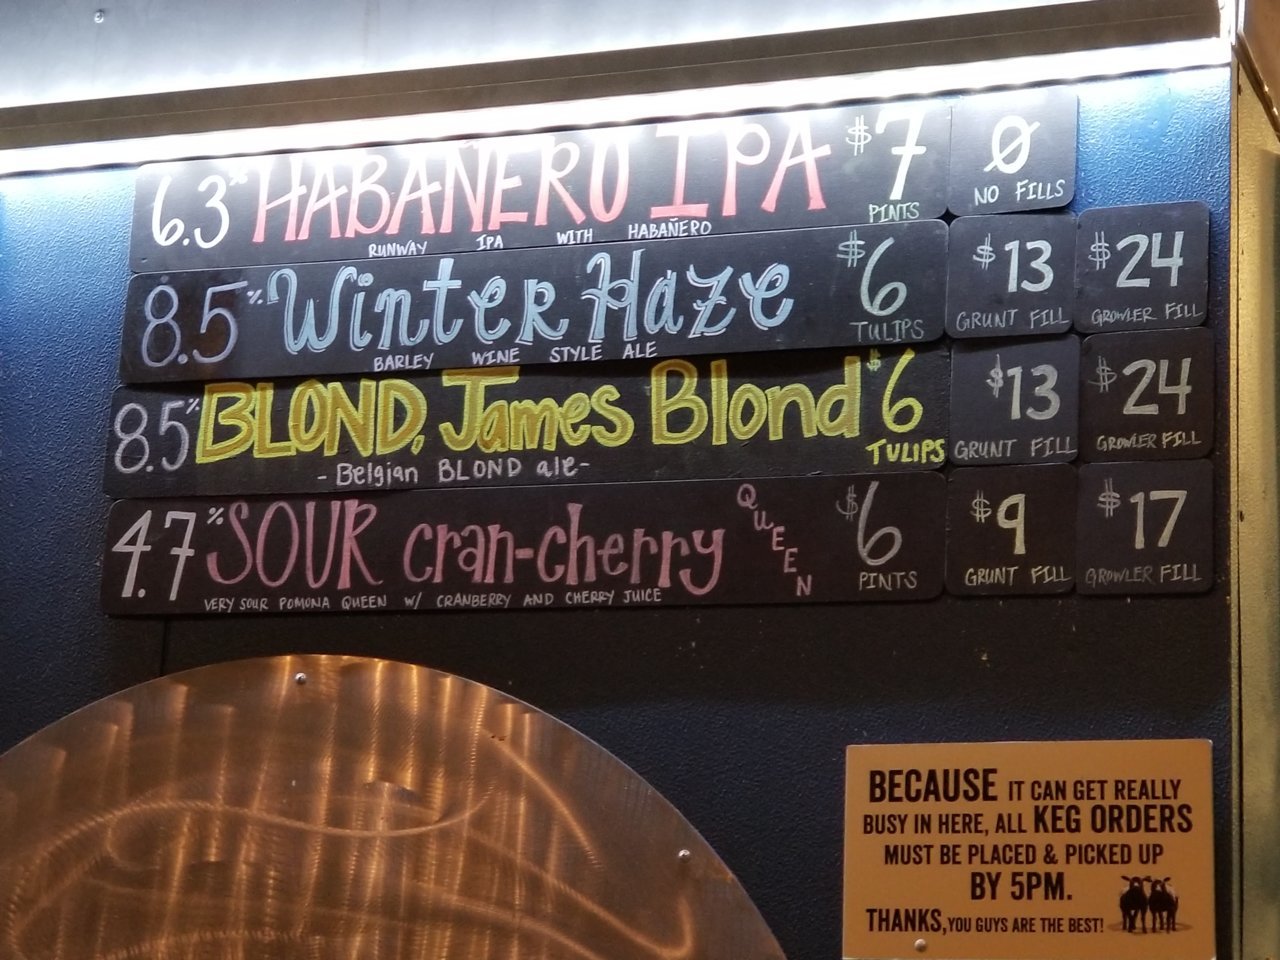 6.3% HABANERO IPA $7 PINTS Ø NO FILLS
RUNWAY IPA WITH HABAÑERO
8.5% Winter Haze $6 TULIPS $13 GRUNT FILL $24 GROWLER FILL
BARLEY WINE STYLE ALE
8.5% BLOND, James Blond $6 TULIPS $13 GRUNT FILL $24 GROWLER FILL
- Belgian BLOND ale -
4.7% SOUR cran-cherry QUEEN $6 PINTS $9 GRUNT FILL $17 GROWLER FILL
VERY SOUR POMONA QUEEN W/ CRANBERRY AND CHERRY JUICE
BECAUSE IT CAN GET REALLY
BUSY IN HERE, ALL KEG ORDERS
MUST BE PLACED & PICKED UP
BY 5PM.
THANKS, YOU GUYS ARE THE BEST!